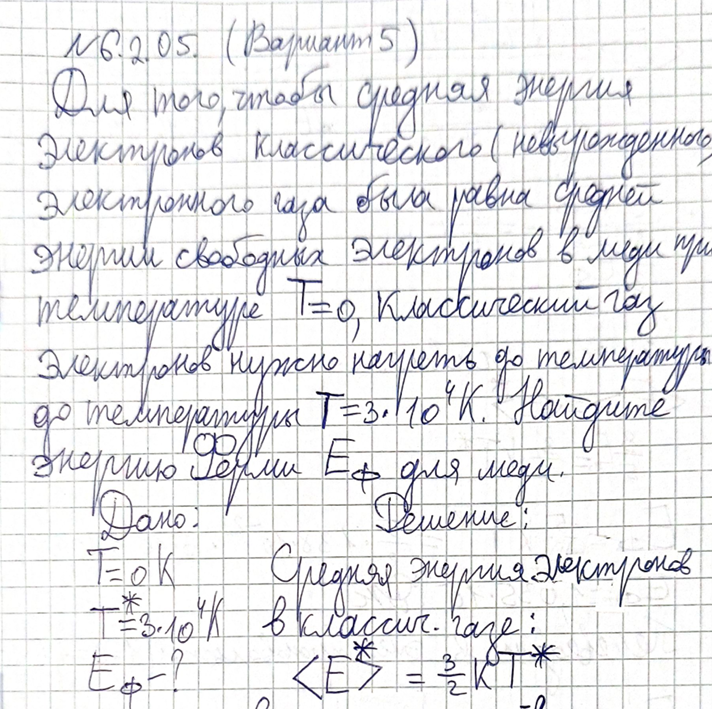 №6.2.05. (Вариант 5)
Для того, чтобы средняя энергия
электронов классического (невырожденного)
электронного газа была равна средней
энергии свободных электронов в меди при
температуре T=0, классический газ
электронов нужно нагреть до температуры
до температуры T=3·10⁴К. Найдите
энергию Ферми Eф для меди.
Дано: Решение:
T=0К Средняя энергия электронов
T*=3·10⁴К в классич. газе:
Eф-? <E*> = 3/2 kT*